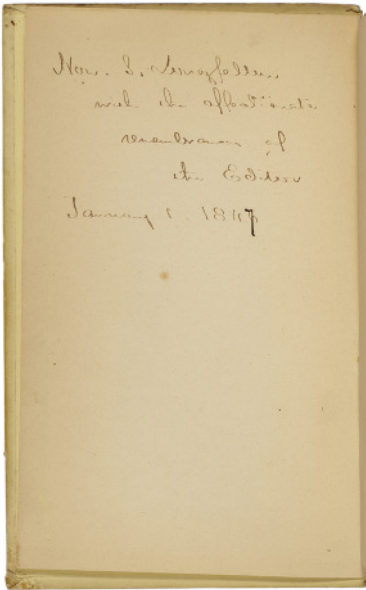 Hon. S. Longfellow
with the affectionate
remembrance of
the Editor
January 1. 1847